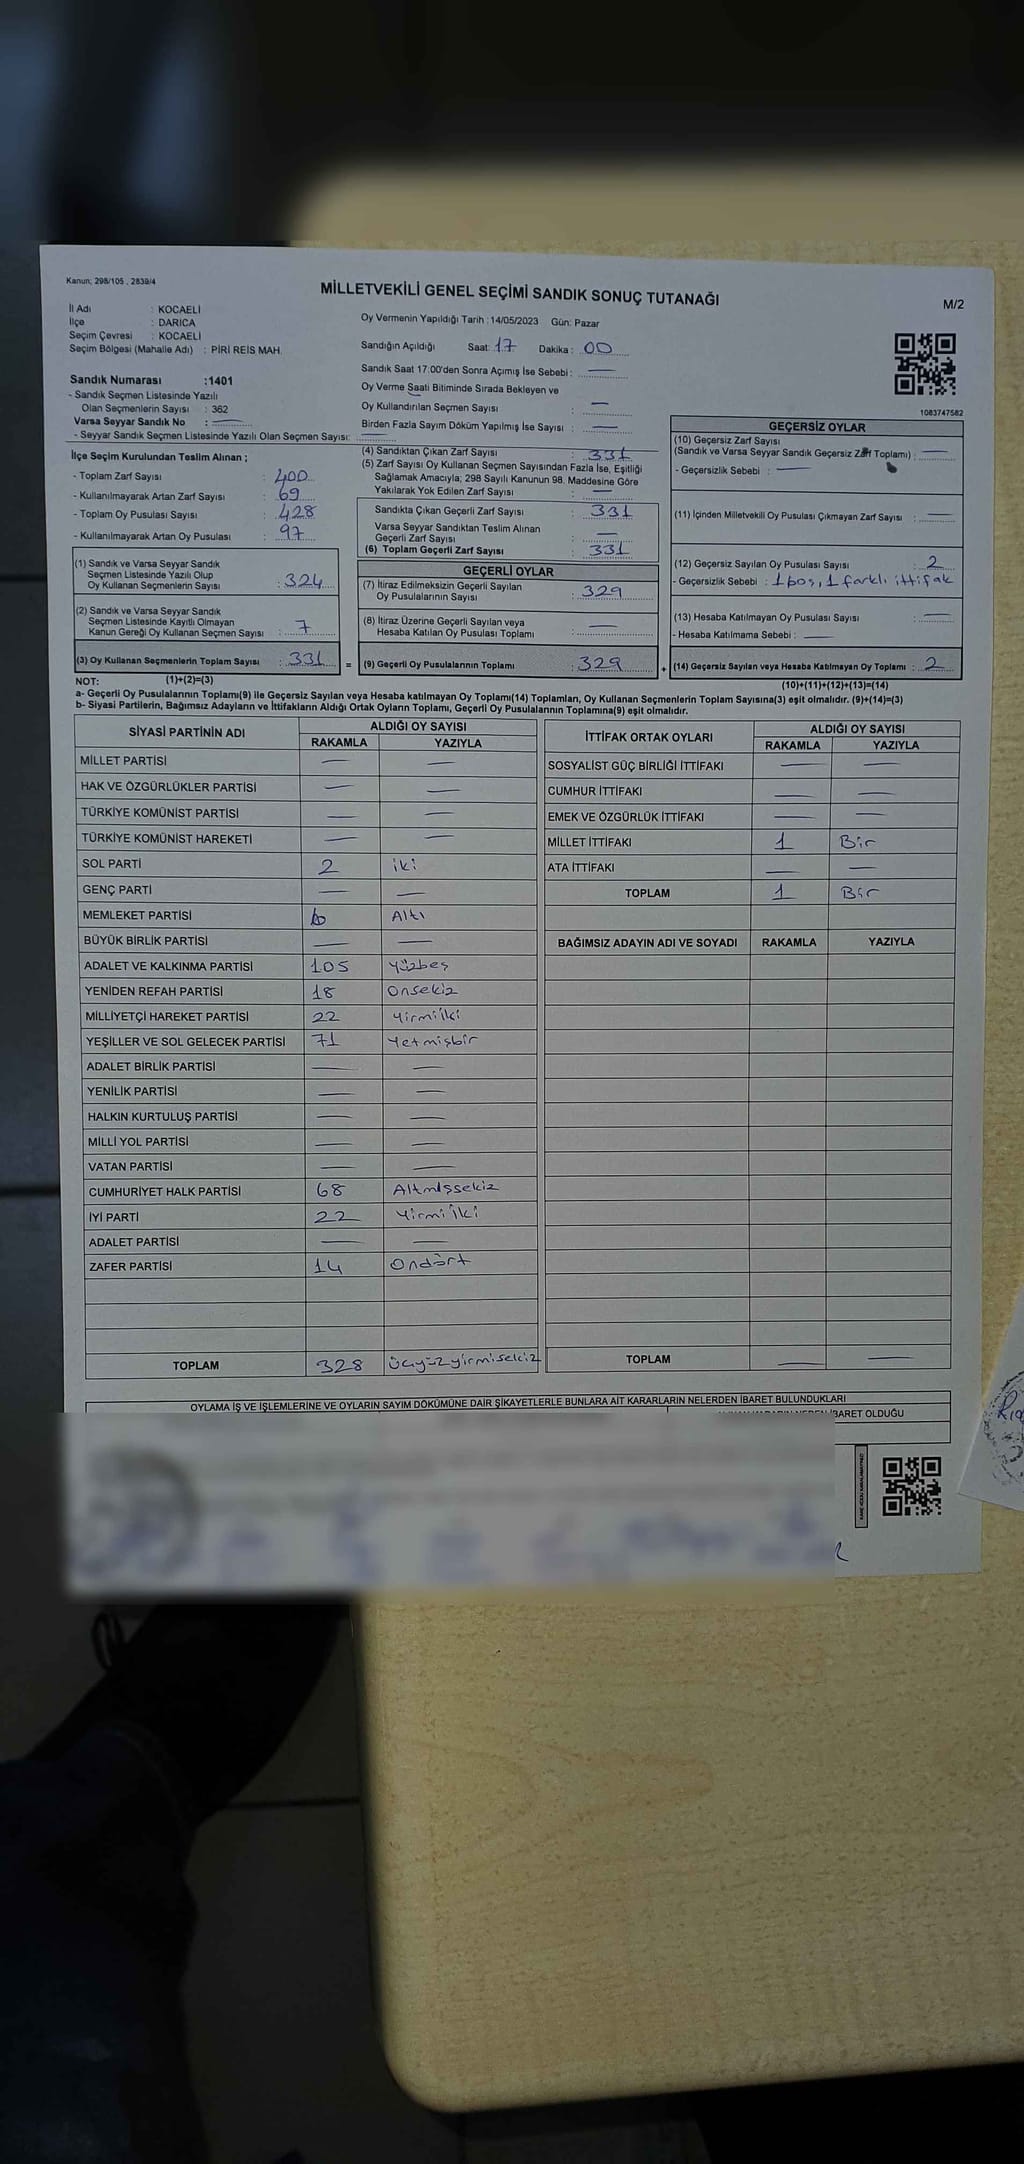 Kanun; 298/105 , 2839/4
MİLLETVEKİLİ GENEL SEÇİMİ SANDIK SONUÇ TUTANAĞI
M/2
İl Adı : KOCAELİ
İlçe : DARICA
Seçim Çevresi : KOCAELİ
Seçim Bölgesi (Mahalle Adı) : PİRİ REİS MAH.
Oy Vermenin Yapıldığı Tarih :14/05/2023 Gün: Pazar
Sandığın Açıldığı Saat: 17 Dakika : 00
Sandık Saat 17:00'den Sonra Açımış İse Sebebi : —
Oy Verme Saati Bitiminde Sırada Bekleyen ve
Oy Kullandırılan Seçmen Sayısı : —
Birden Fazla Sayım Döküm Yapılmış İse Sayısı : —
Sandık Numarası :1401
- Sandık Seçmen Listesinde Yazılı
Olan Seçmenlerin Sayısı : 362
Varsa Seyyar Sandık No : —
- Seyyar Sandık Seçmen Listesinde Yazılı Olan Seçmen Sayısı: —
1083747582
İlçe Seçim Kurulundan Teslim Alınan ;
- Toplam Zarf Sayısı : 400
- Kullanılmayarak Artan Zarf Sayısı : 69
- Toplam Oy Pusulası Sayısı : 428
- Kullanılmayarak Artan Oy Pusulası : 97
(1) Sandık ve Varsa Seyyar Sandık
Seçmen Listesinde Yazılı Olup
Oy Kullanan Seçmenlerin Sayısı : 324
(2) Sandık ve Varsa Seyyar Sandık
Seçmen Listesinde Kayıtlı Olmayan
Kanun Gereği Oy Kullanan Seçmen Sayısı : 7
(3) Oy Kullanan Seçmenlerin Toplam Sayısı : 331
(4) Sandıktan Çıkan Zarf Sayısı : 331
(5) Zarf Sayısı Oy Kullanan Seçmen Sayısından Fazla İse, Eşitliği
Sağlamak Amacıyla; 298 Sayılı Kanunun 98. Maddesine Göre
Yakılarak Yok Edilen Zarf Sayısı : —
Sandıkta Çıkan Geçerli Zarf Sayısı : 331
Varsa Seyyar Sandıktan Teslim Alınan
Geçerli Zarf Sayısı : —
(6) Toplam Geçerli Zarf Sayısı : 331
GEÇERLİ OYLAR
(7) İtiraz Edilmeksizin Geçerli Sayılan
Oy Pusulalarının Sayısı : 329
(8) İtiraz Üzerine Geçerli Sayılan veya
Hesaba Katılan Oy Pusulası Toplamı : —
= (9) Geçerli Oy Pusulalarının Toplamı : 329 +
GEÇERSİZ OYLAR
(10) Geçersiz Zarf Sayısı
(Sandık ve Varsa Seyyar Sandık Geçersiz Zarf Toplamı) : —
- Geçersizlik Sebebi : —
(11) İçinden Milletvekili Oy Pusulası Çıkmayan Zarf Sayısı : —
(12) Geçersiz Sayılan Oy Pusulası Sayısı : 2
- Geçersizlik Sebebi : 1 boş, 1 farklı ittifak
(13) Hesaba Katılmayan Oy Pusulası Sayısı : —
- Hesaba Katılmama Sebebi : —
(14) Geçersiz Sayılan veya Hesaba Katılmayan Oy Toplamı : 2
NOT: (1)+(2)=(3)
(10)+(11)+(12)+(13)=(14)
a- Geçerli Oy Pusulalarının Toplamı(9) ile Geçersiz Sayılan veya Hesaba katılmayan Oy Toplamı(14) Toplamları, Oy Kullanan Seçmenlerin Toplam Sayısına(3) eşit olmalıdır. (9)+(14)=(3)
b- Siyasi Partilerin, Bağımsız Adayların ve İttifakların Aldığı Ortak Oyların Toplamı, Geçerli Oy Pusulalarının Toplamına(9) eşit olmalıdır.
SİYASİ PARTİNİN ADI ALDIĞI OY SAYISI
RAKAMLA YAZIYLA
MİLLET PARTİSİ — —
HAK VE ÖZGÜRLÜKLER PARTİSİ — —
TÜRKİYE KOMÜNİST PARTİSİ — —
TÜRKİYE KOMÜNİST HAREKETİ — —
SOL PARTİ 2 iki
GENÇ PARTİ — —
MEMLEKET PARTİSİ 6 Altı
BÜYÜK BİRLİK PARTİSİ — —
ADALET VE KALKINMA PARTİSİ 105 Yüzbeş
YENİDEN REFAH PARTİSİ 18 Onsekiz
MİLLİYETÇİ HAREKET PARTİSİ 22 Yirmiiki
YEŞİLLER VE SOL GELECEK PARTİSİ 71 Yetmişbir
ADALET BİRLİK PARTİSİ — —
YENİLİK PARTİSİ — —
HALKIN KURTULUŞ PARTİSİ — —
MİLLİ YOL PARTİSİ — —
VATAN PARTİSİ — —
CUMHURİYET HALK PARTİSİ 68 Altmışsekiz
İYİ PARTİ 22 Yirmiiki
ADALET PARTİSİ — —
ZAFER PARTİSİ 14 Ondört
TOPLAM 328 üçyüzyirmisekiz
İTTİFAK ORTAK OYLARI ALDIĞI OY SAYISI
RAKAMLA YAZIYLA
SOSYALİST GÜÇ BİRLİĞİ İTTİFAKI — —
CUMHUR İTTİFAKI — —
EMEK VE ÖZGÜRLÜK İTTİFAKI — —
MİLLET İTTİFAKI 1 Bir
ATA İTTİFAKI — —
TOPLAM 1 Bir
BAĞIMSIZ ADAYIN ADI VE SOYADI RAKAMLA YAZIYLA
TOPLAM — —
OYLAMA İŞ VE İŞLEMLERİNE VE OYLARIN SAYIM DÖKÜMÜNE DAİR ŞİKAYETLERLE BUNLARA AİT KARARLARIN NELERDEN İBARET BULUNDUKLARI
İBARET OLDUĞU